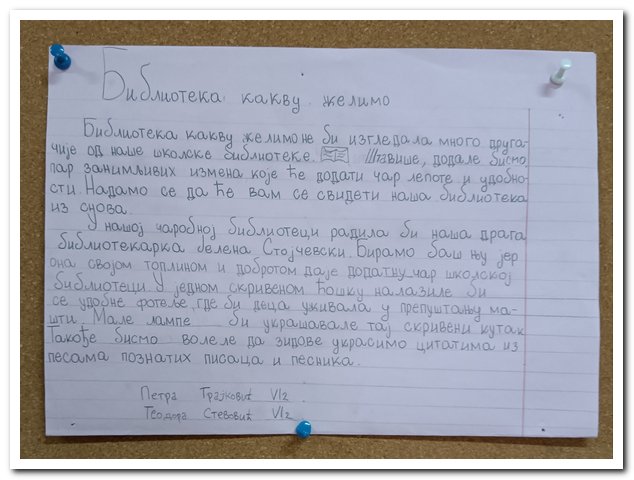 Библиотека какву желимо
Библиотека какву желимо не би изгледала много друга-
чије од наше школске библиотеке. Штавише, додале бисмо
пар занимљивих измена које ће додати чар лепоте и удобно-
сти. Надамо се да ће вам се свидети наша библиотека
из снова.
У нашој чаробној библиотеци радила би наша драга
библиотекарка Јелена Стојчевски. Бирамо баш њу јер
она својом топлином и добротом даје додатну чар школској
библиотеци. У једном скривеном ћошку налазиле би
се удобне фотеље, где би деца уживала у препуштању ма-
шти. Мале лампе би украшавале тај скривени кутак.
Такође бисмо волеле да зидове украсимо цитатима из
песама познатих писаца и песника.
Петра Трајковић VI2
Теодора Стевовић VI2